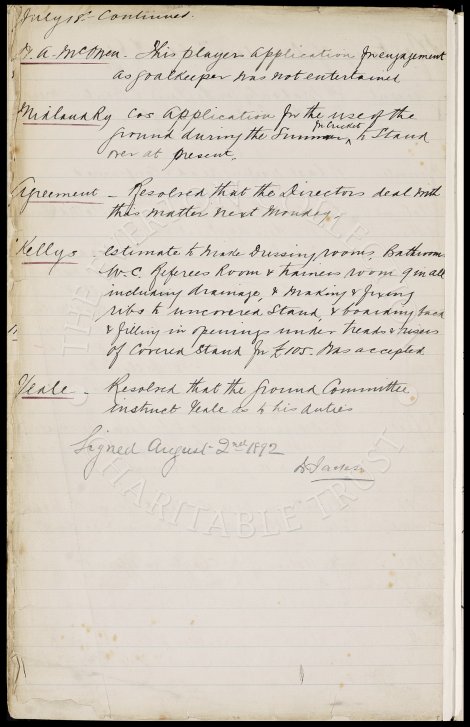 July 18. Continued.
A. McOwen - This players application for engagement
as goalkeeper was not entertained
Midland Ry Cos Application for the use of the
ground during the Summer for Cricket to Stand
over at present.
Agreement - Resolved that the Directors deal with
this matter next Monday.
Kellys - Estimate to Make Dressing rooms, Bathroom
W.C. Referees Room & trainers room 9 in all
including drainage, & Making & fixing
ribs to uncovered Stand, & boarding back
& filling in openings under treads & risers
of Covered Stand for £105. Was accepted
Veale - Resolved that the Ground Committee
instruct Veale as to his duties
Signed August 2nd 1892
Jackson
CHARITABLE TRUST